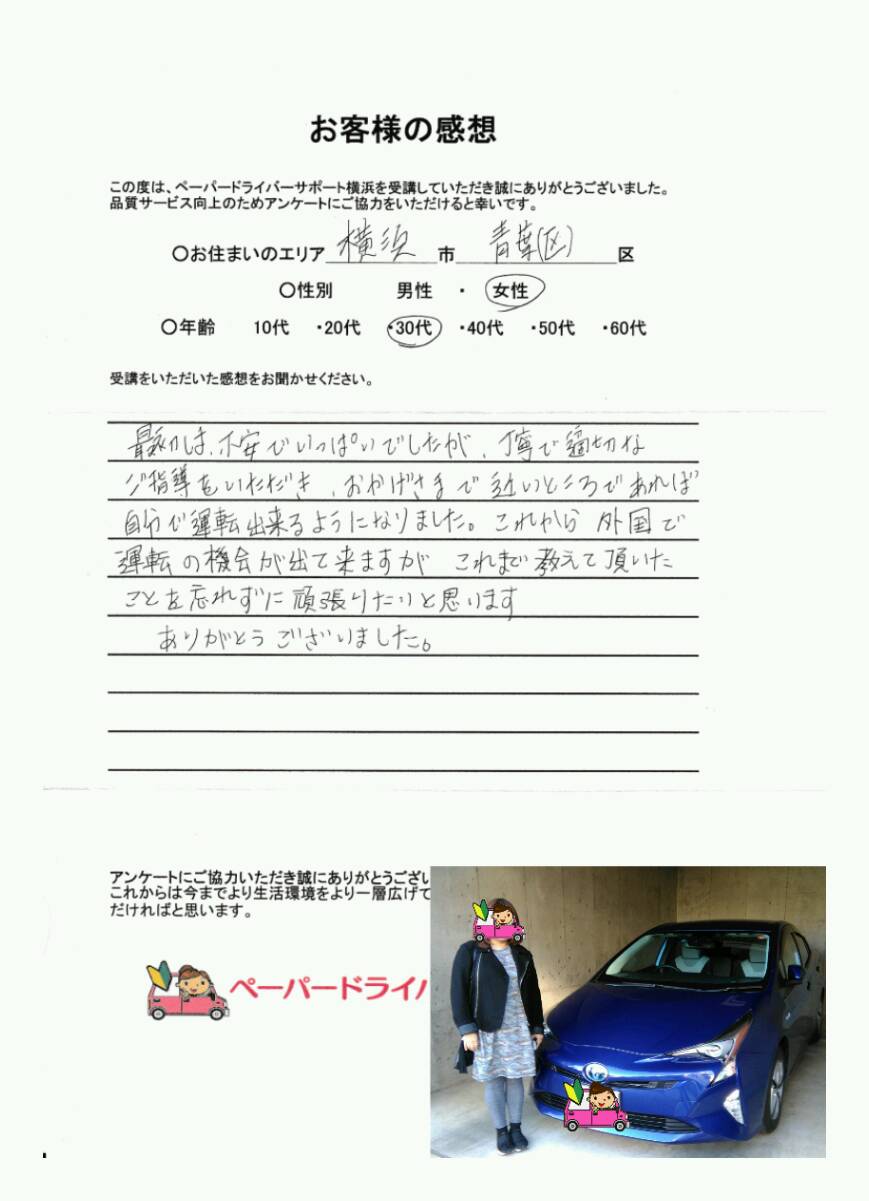 お客様の感想
この度は、ペーパードライバーサポート横浜を受講していただき誠にありがとうございました。
品質サービス向上のためアンケートにご協力をいただけると幸いです。
〇お住まいのエリア 横浜 市 青葉(区) 区
〇性別 男性 ・ 女性
〇年齢 10代 ・20代 ・30代 ・40代 ・50代 ・60代
受講をいただいた感想をお聞かせください。
最初は、不安でいっぱいでしたが、丁寧で適切な
ご指導をいただき、おかげさまで近いところであれば
自分で運転出来るようになりました。これから外国で
運転の機会が出て来ますが これまで教えて頂いた
ことを忘れずに頑張りたいと思います
ありがとうございました。
アンケートにご協力いただき誠にありがとうござい
これからは今までより生活環境をより一層広げて
だければと思います。
ペーパードライバ